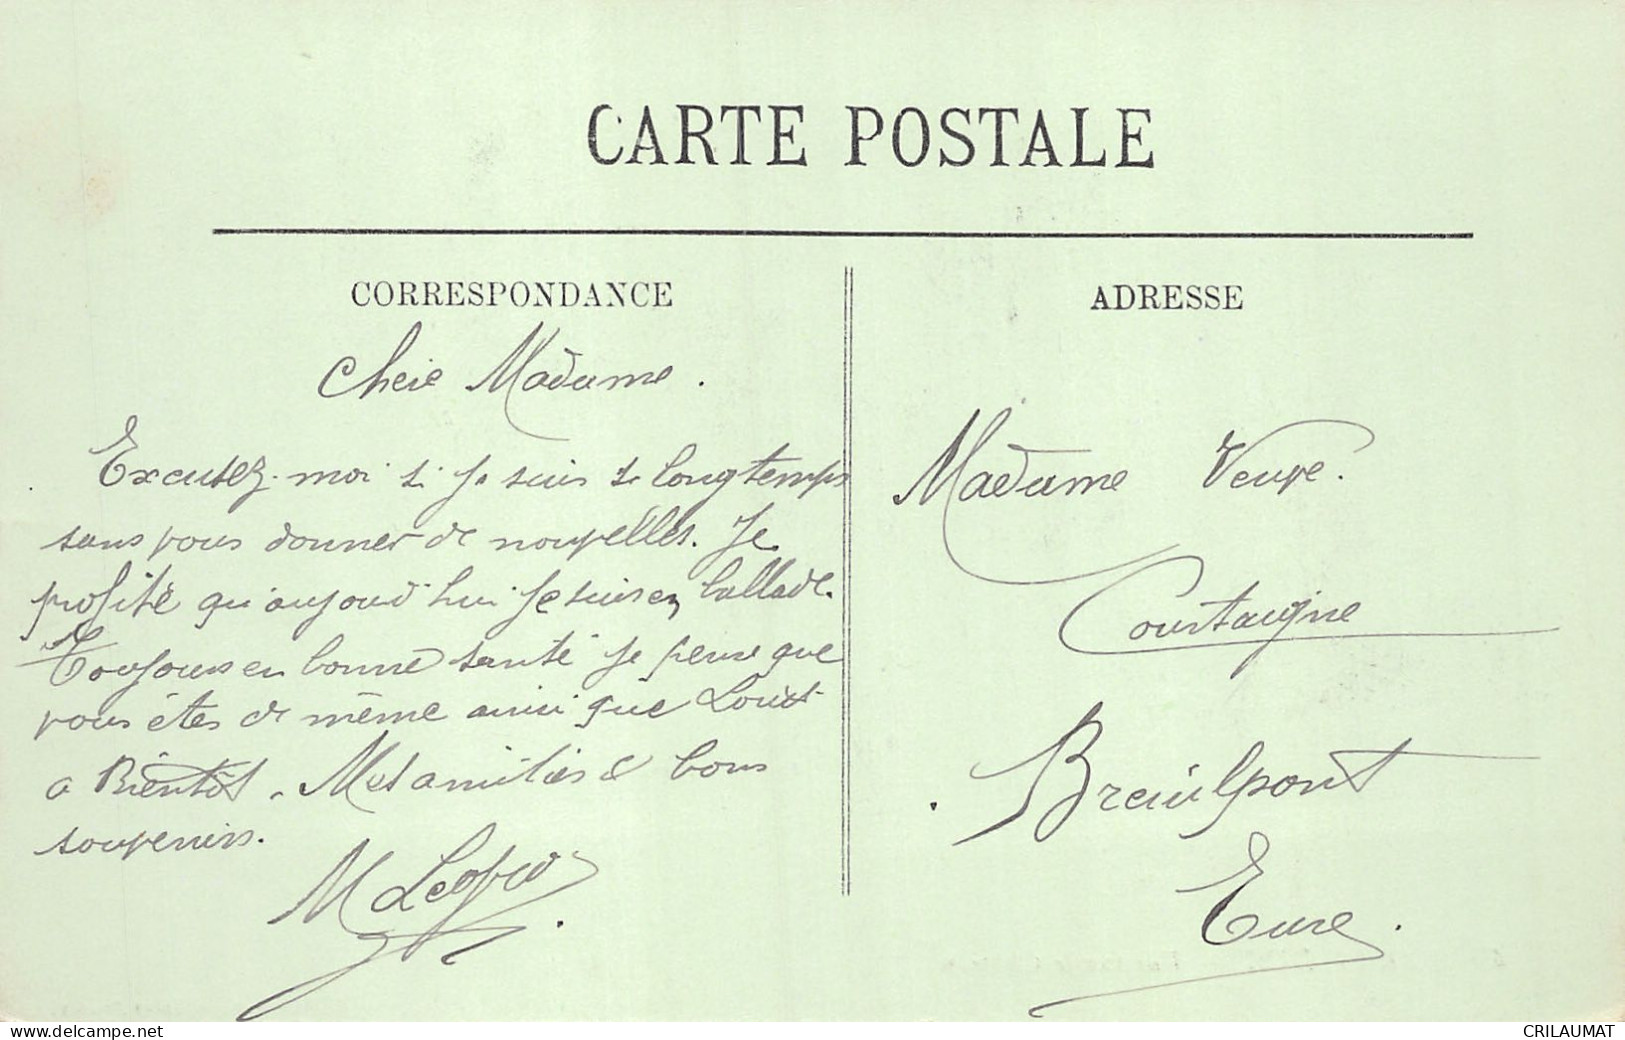 CARTE POSTALE
CORRESPONDANCE
Chère Madame.
Excusez-moi si je suis si longtemps
sans vous donner de nouvelles. Je
profite qu'aujourd'hui je suis en ballade.
Toujours en bonne santé je pense que
vous êtes de même ainsi que Louis
a Bientôt. Mes amitiés & bons
souvenirs.
M
ADRESSE
Madame Veuve.
Courtaigne
Breuilpont
Eure.
www.delcampe.net
CRILAUMAT